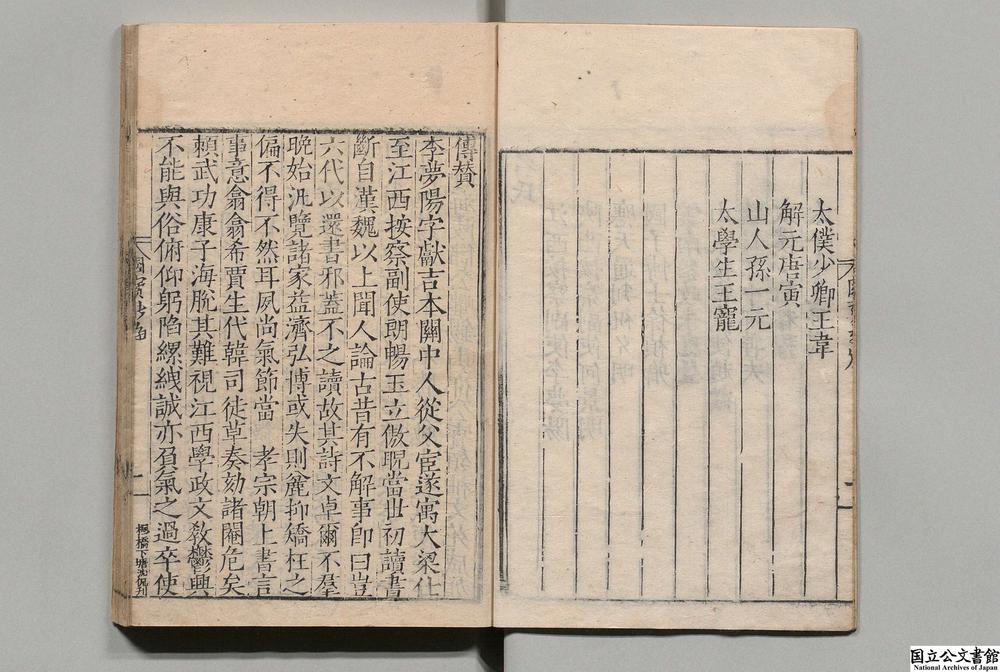 太僕少卿王韋
解元唐寅
山人孫一元
太學生王寵
傳贊
李夢陽字獻吉本關中人從父宦遂寓大梁仕
至江西按察副使朗暢玉立傲睨當世初讀書
斷自漢魏以上聞人論古昔有不解事卽曰豈
六代以還書邪蓋不之讀故其詩文卓爾不羣
晚始汎覽諸家益濟弘博或失則麄抑矯枉之
偏不得不然耳夙尚氣節當 孝宗朝上書言
事意翕翕希賈生代韓司徒草奏劾諸閹危矣
頼武功康子海脫其難視江西學政文敎鬱興
不能與俗俯仰躬陷縲絏誠亦負氣之過卒使
国立公文書館
National Archives of Japan